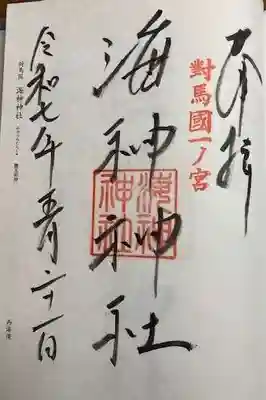 奉拝
對馬國一ノ宮
海神神社
海神
神社
令和七年
対馬国
海神神社
西海道